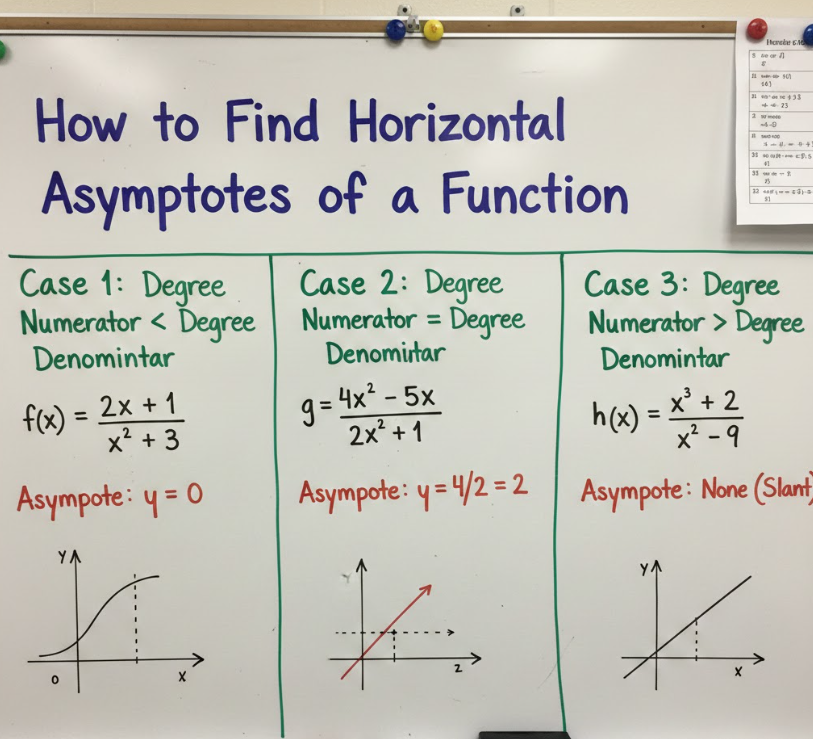 How to Find Horizontal
Asymptotes of a Function
Case 1: Degree
Numerator < Degree
Denomintar
f(x) = (2x + 1)/(x² + 3)
Asympote: y = 0
Y
0
X
Case 2: Degree
Numerator = Degree
Denomintar
g = (4x² - 5x)/(2x² + 1)
Asympote: y = 4/2 = 2
2
Case 3: Degree
Numerator > Degree
Denomintar
h(x) = (x³ + 2)/(x² - 9)
Asympote: None (Slant)
Y
X